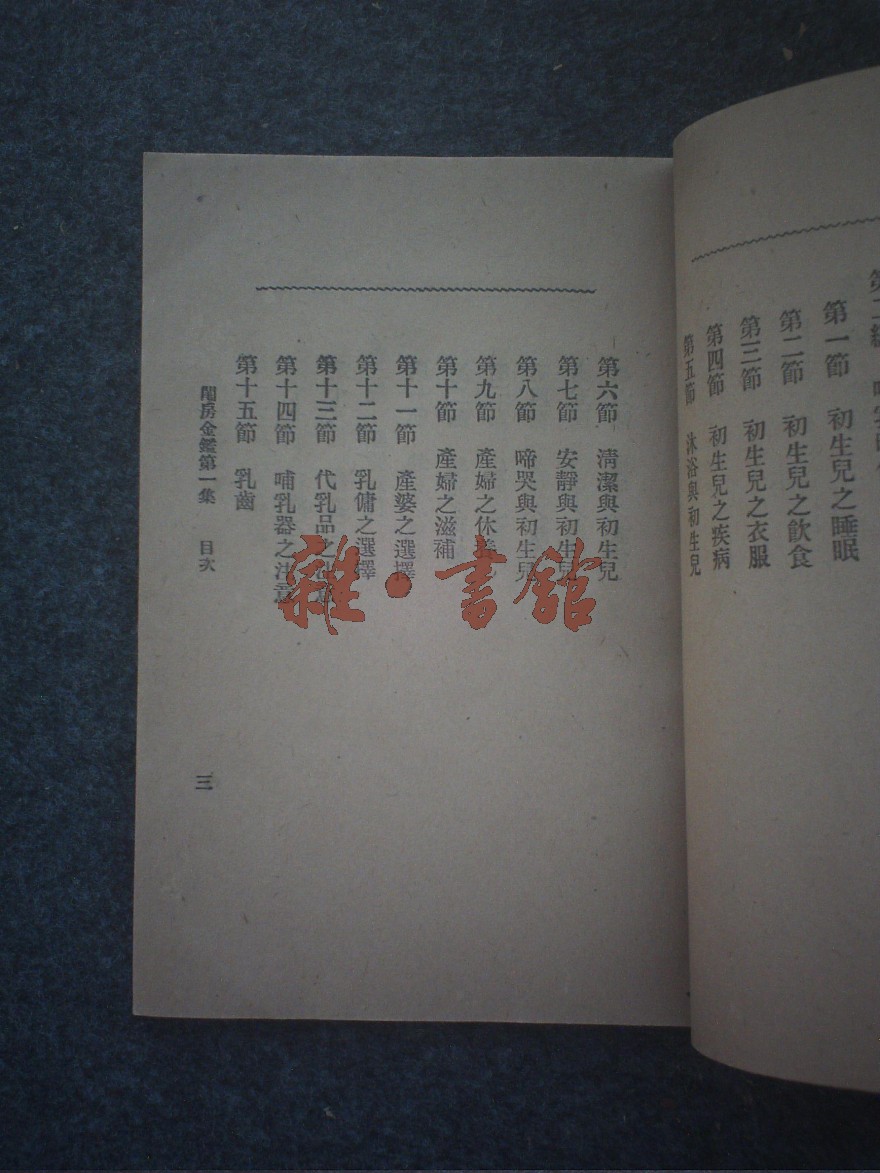 第一節　初生兒之睡眠
第二節　初生兒之飲食
第三節　初生兒之衣服
第四節　初生兒之疾病
第五節　沐浴與初生兒
第六節　清潔與初生兒
第七節　安靜與初生兒
第八節　啼哭與初生兒
第九節　產婦之休養
第十節　產婦之滋補
第十一節　產婆之選擇
第十二節　乳傭之選擇
第十三節　代乳品之
第十四節　哺乳器之注意
第十五節　乳齒
閨房金鑑第一集　目次
三
雜·書館